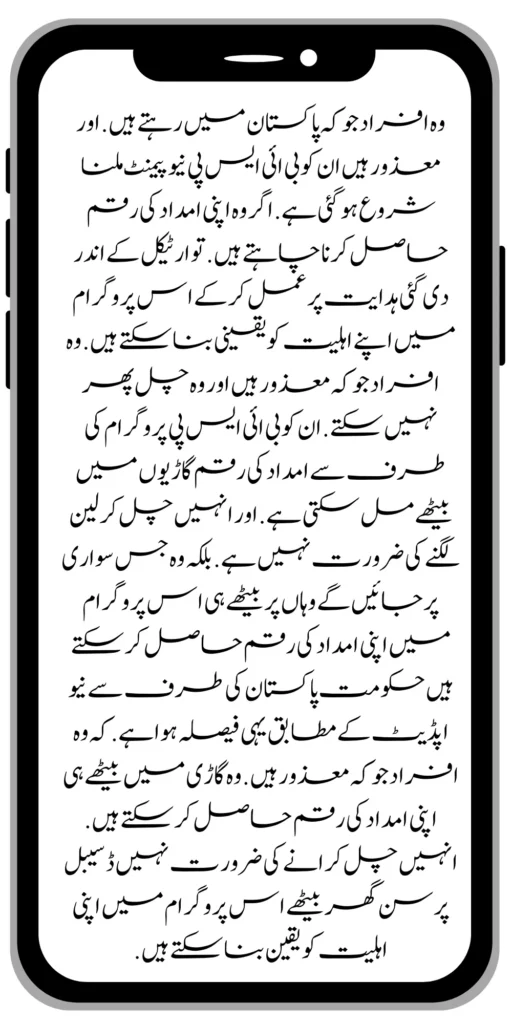 وہ افراد جو کہ پاکستان میں رہتے ہیں. اور
معذور ہیں ان کو بی ائی ایس پی نیو پیمنٹ ملنا
شروع ہو گئی ہے. اگر وہ اپنی امداد کی رقم
حاصل کرنا چاہتے ہیں. تو ارٹیکل کے اندر
دی گئی ہدایت پر عمل کر کے اس پروگرام
میں اپنے اہلیت کو یقینی بنا سکتے ہیں. وہ
افراد جو کہ معذور ہیں اور وہ چل پھر
نہیں سکتے. ان کو بی ائی ایس پی پروگرام کی
طرف سے امداد کی رقم گاڑیوں میں
بیٹھے مل سکتی ہے. اور انہیں چل کر لین
لگنے کی ضرورت نہیں ہے. بلکہ وہ جس سواری
پر جائیں گے وہاں پر بیٹھے ہی اس پروگرام
میں اپنی امداد کی رقم حاصل کر سکتے
ہیں حکومت پاکستان کی طرف سے نیو
اپڈیٹ کے مطابق یہی فیصلہ ہوا ہے. کہ وہ
افراد جو کہ معذور ہیں. وہ گاڑی میں بیٹھے ہی
اپنی امداد کی رقم حاصل کر سکتے ہیں.
انہیں چل کرانے کی ضرورت نہیں ڈسیبل
پرسن گھر بیٹھے اس پروگرام میں اپنی
اہلیت کو یقین بنا سکتے ہیں.